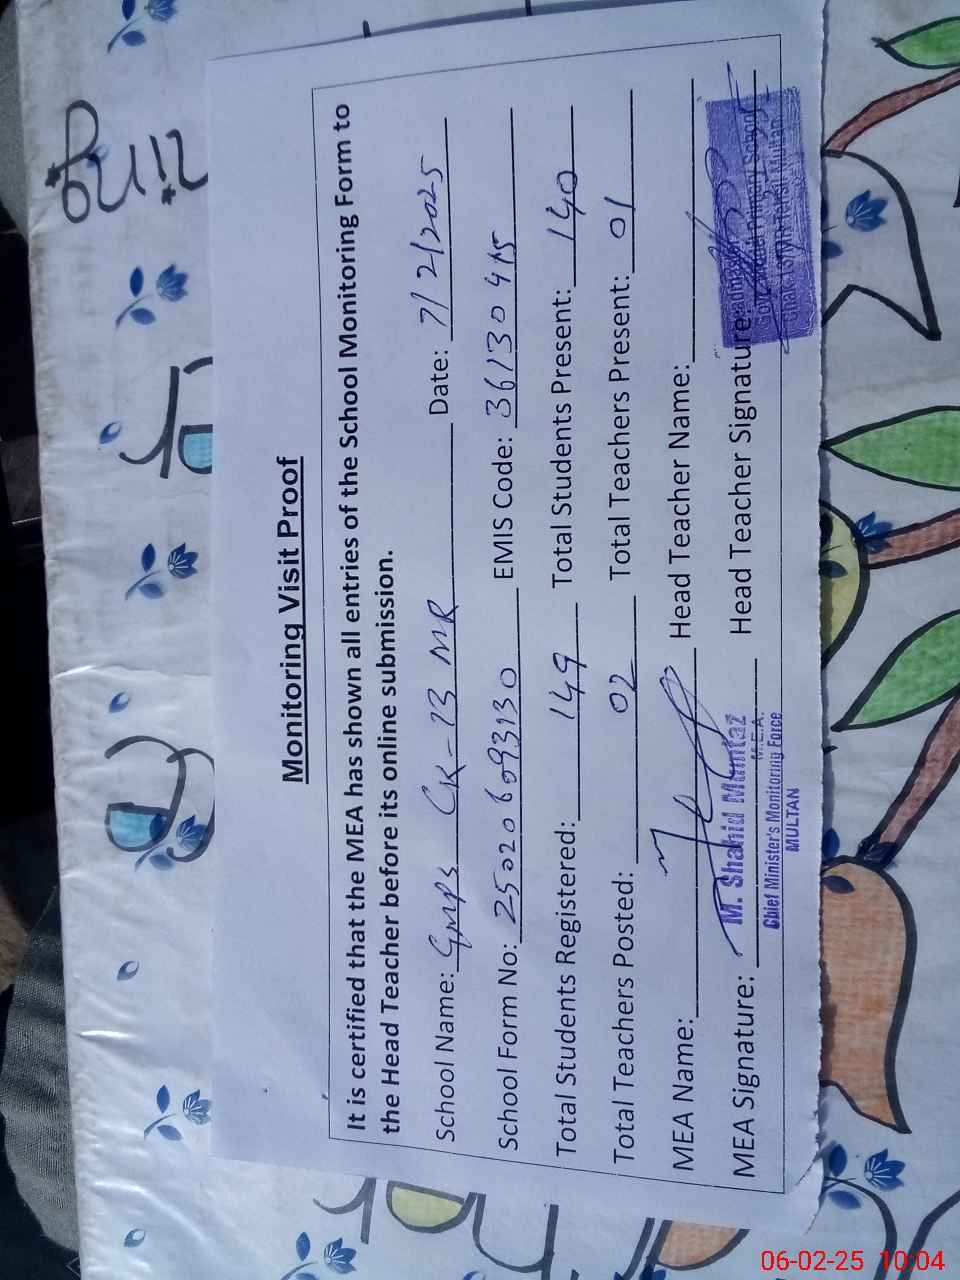 Monitoring Visit Proof
It is certified that the MEA has shown all entries of the School Monitoring Form to
the Head Teacher before its online submission.
School Name: GMPS CK-13 MR Date: 7/2/2025
School Form No: 250206093130 EMIS Code: 36130415
Total Students Registered: 149 Total Students Present: 140
Total Teachers Posted: 02 Total Teachers Present: 01
MEA Name: Head Teacher Name:
MEA Signature: Head Teacher Signature:
M. Shahid Mumtaz
M.E.A.
Chief Minister's Monitoring Force
MULTAN
Primary School
06-02-25 10:04